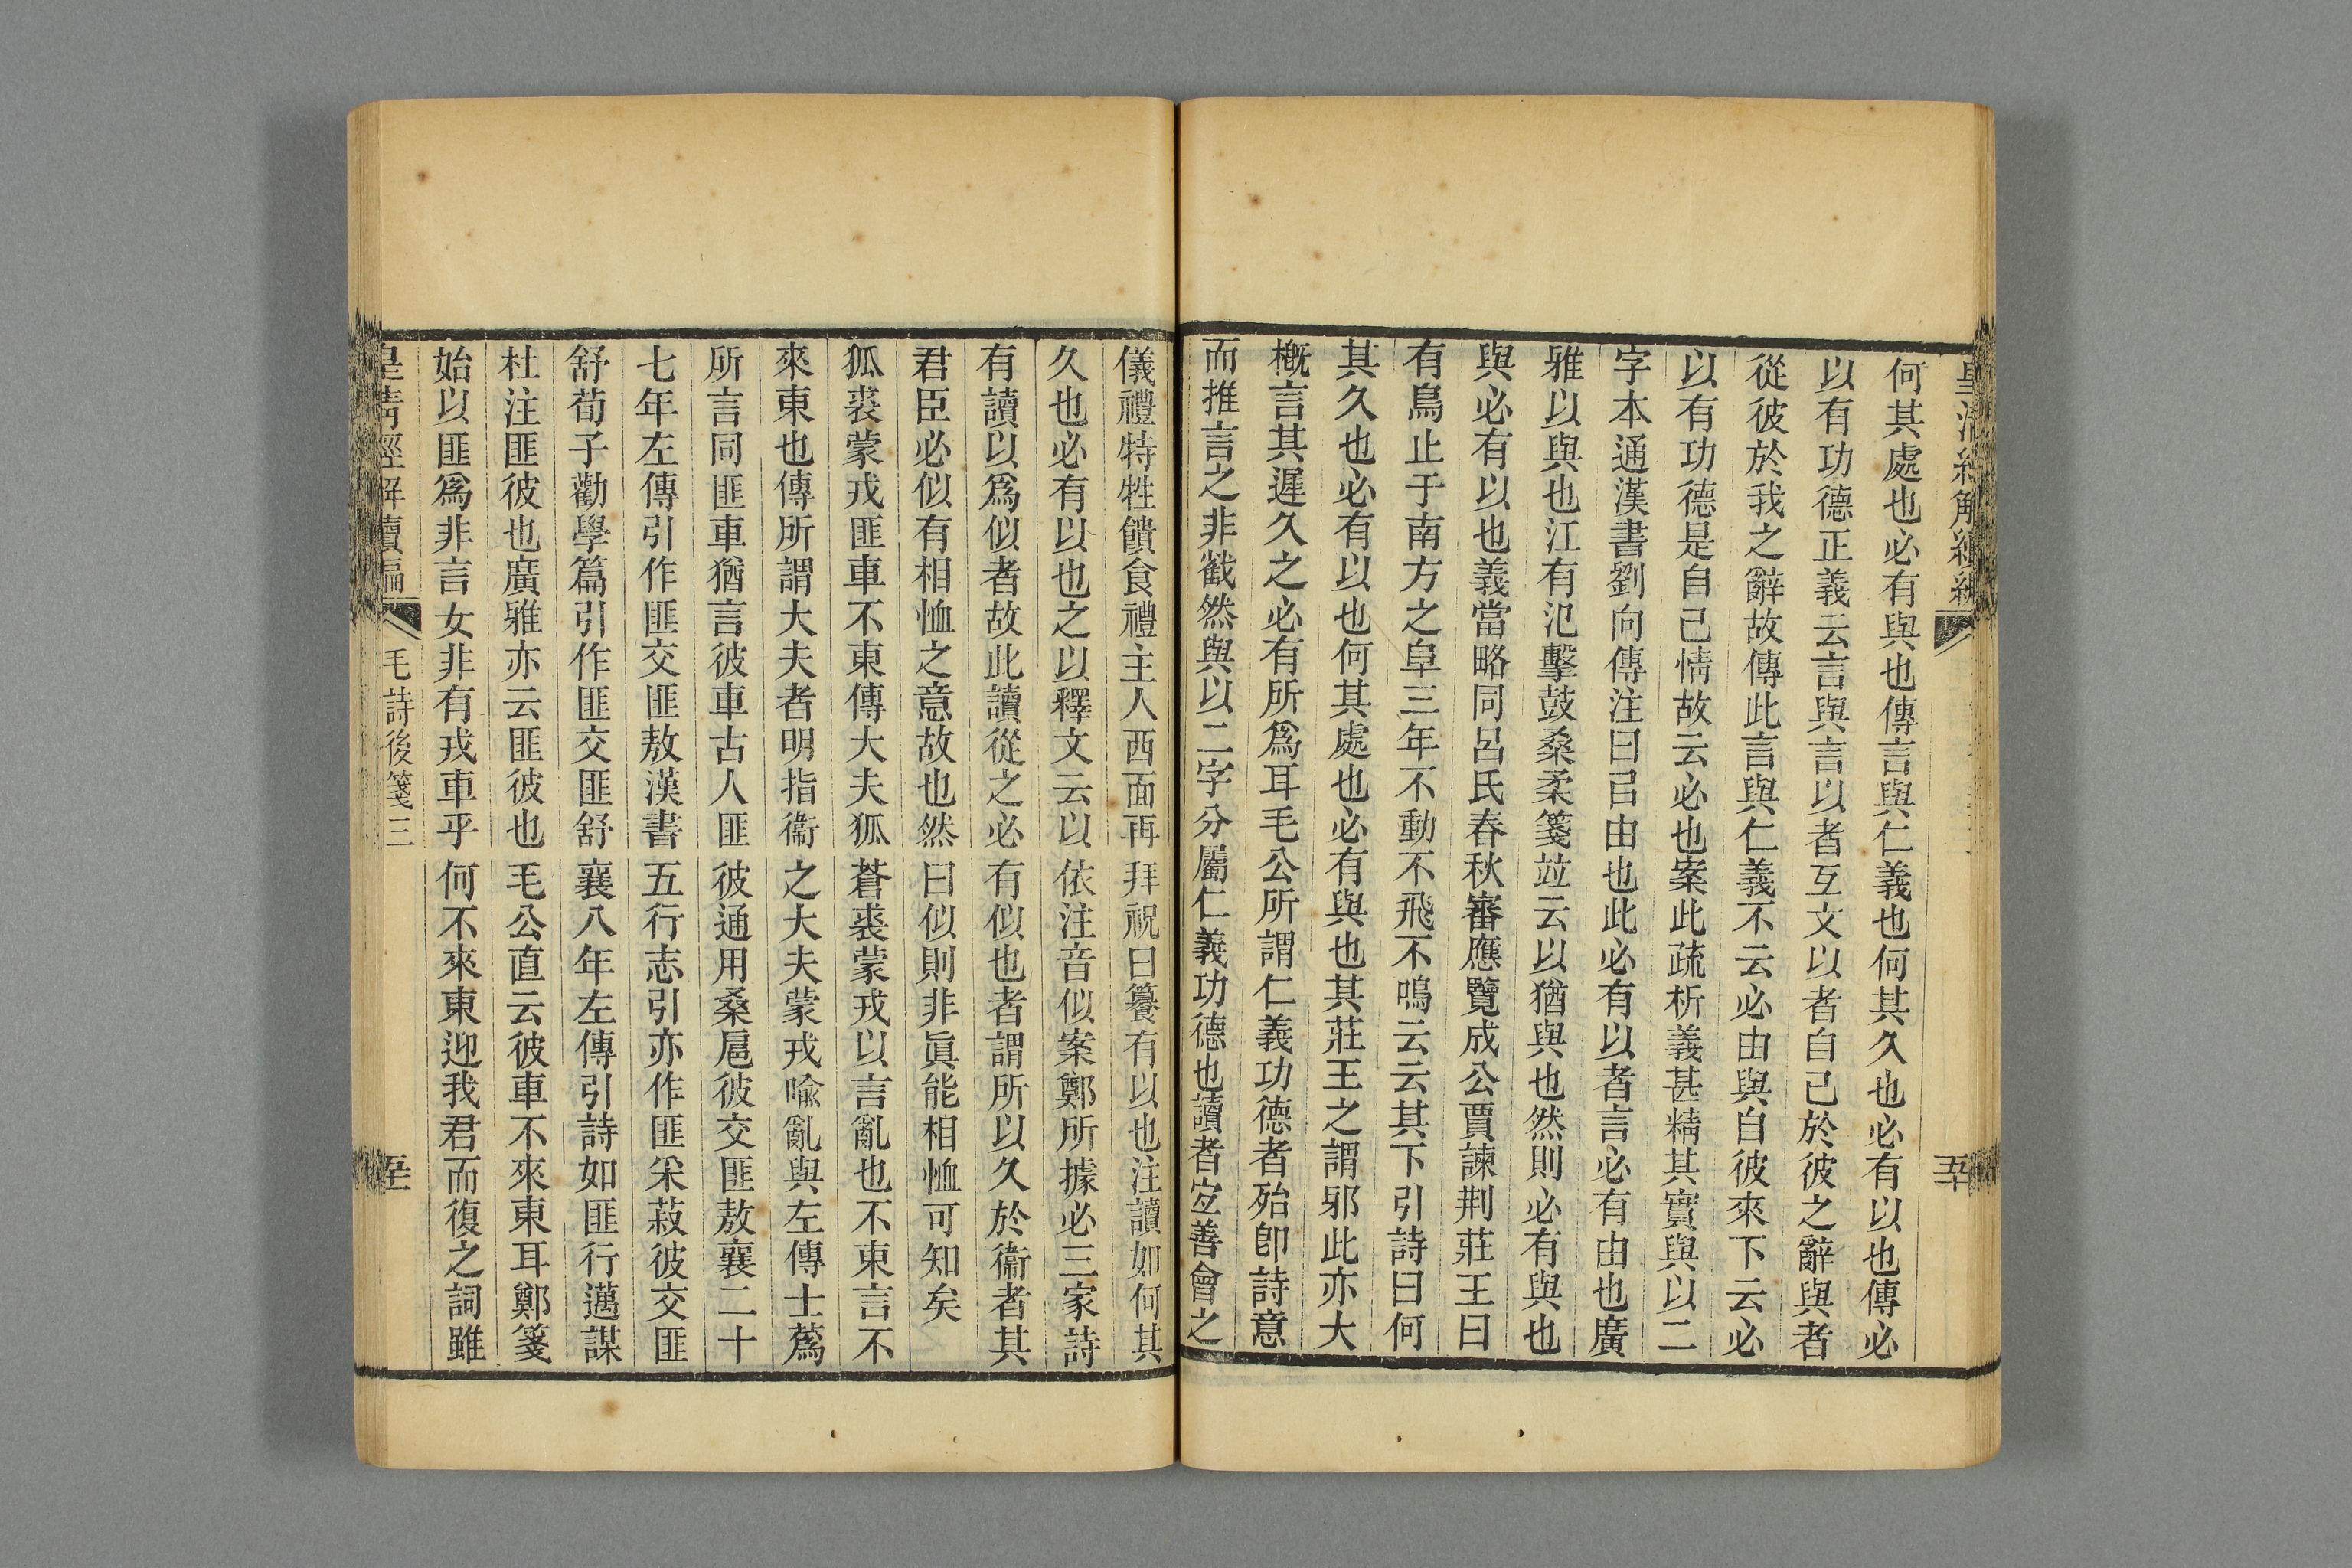 何其處也必有與也傳言與仁義也何其久也必有以也傳必
以有功德正義云言與言以者互文以者自己於彼之辭與者
從彼於我之辭故傳此言與仁義不云必由與自彼來下云必
以有功德是自己情故云必也案此疏析義甚精其實與以二
字本通漢書劉向傳注曰㠯由也此必有以者言必有由也廣
雅以與也江有氾擊鼓桑柔箋竝云以猶與也然則必有與也
與必有以也義當略同呂氏春秋審應覽成公賈諫荆莊王曰
有鳥止于南方之阜三年不動不飛不鳴云云其下引詩曰何
其久也必有以也何其處也必有與也其莊王之謂邪此亦大
概言其遲久之必有所爲耳毛公所謂仁義功德者殆卽詩意
而推言之非截然與以二字分屬仁義功德也讀者宐善會之
五十
儀禮特牲饋食禮主人西面再拜祝曰䉵有以也注讀如何其
久也必有以也之以釋文云以依注音似案鄭所據必三家詩
有讀以爲似者故此讀從之必有似也者謂所以久於衞者其
君臣必似有相恤之意故也然曰似則非眞能相恤可知矣
狐裘蒙戎匪車不東傳大夫狐蒼裘蒙戎以言亂也不東言不
來東也傳所謂大夫者明指衞之大夫蒙戎喩亂與左傳士蔿
所言同匪車猶言彼車古人匪彼通用桑扈彼交匪敖襄二十
七年左傳引作匪交匪敖漢書五行志引亦作匪采菽彼交匪
舒荀子勸學篇引作匪交匪舒襄八年左傳引詩如匪行邁謀
杜注匪彼也廣雅亦云匪彼也毛公直云彼車不來東耳鄭箋
始以匪爲非言女非有戎車乎何不來東迎我君而復之詞雖
皇清經解續編 毛詩後箋三